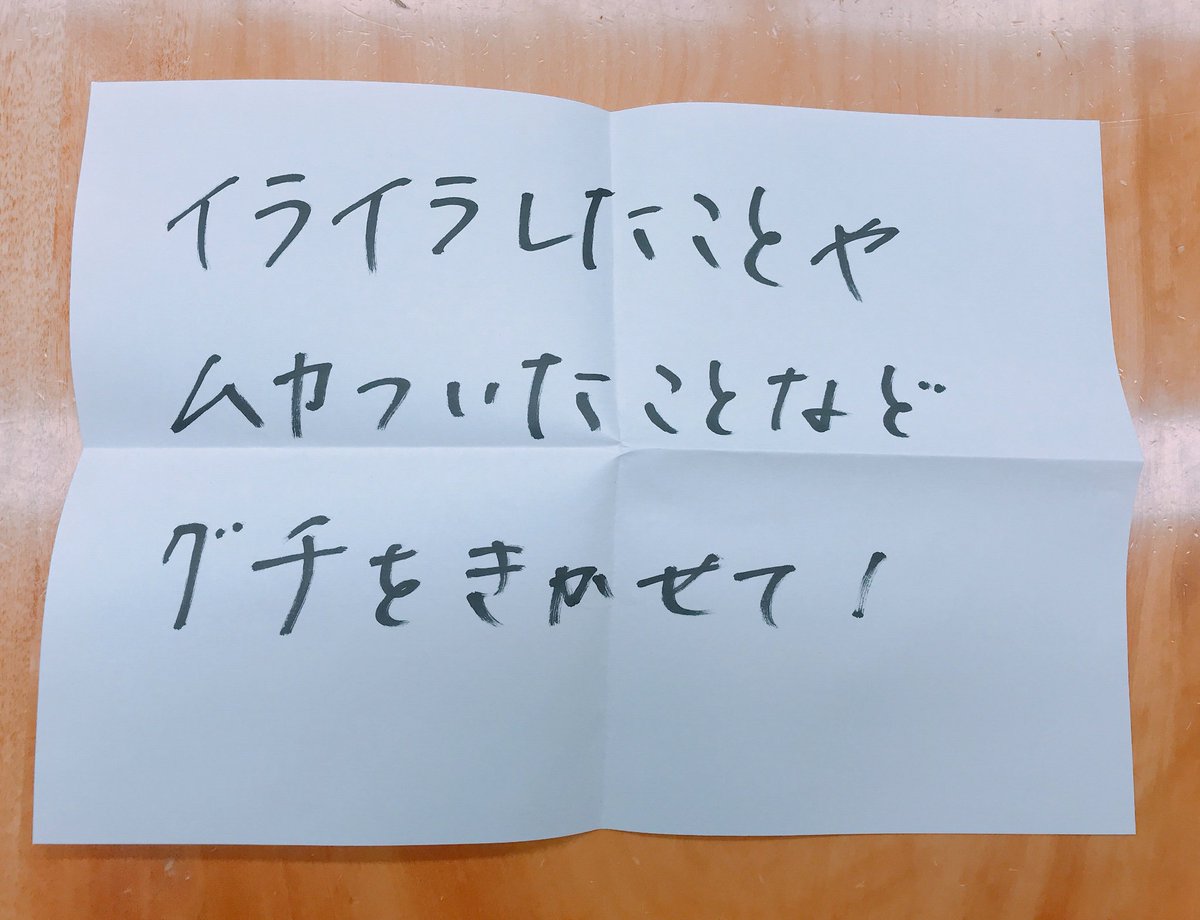 イライラしたことや
ムカついたことなど
グチをきかせて!